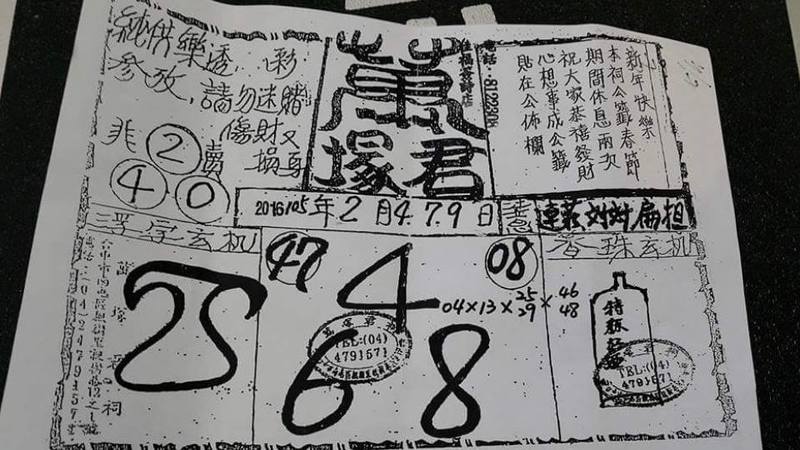 純供樂透、彩
參攷,請勿迷賭
傷財又
損身
非 2 賣
4 0
萬
塚君
電話:8122208
新年快樂
本祠公籤春節
期間休息兩次
祝大家恭禧發財
心想事成公籤
貼在公佈欄
2016/05年2月4.7.9日
連莊対対扁担
浮字玄机
香珠玄机
25
47
4
08
04×13×25/29×46/48
6 8
TEL:(04)
4791571
TEL:(04)
4791571